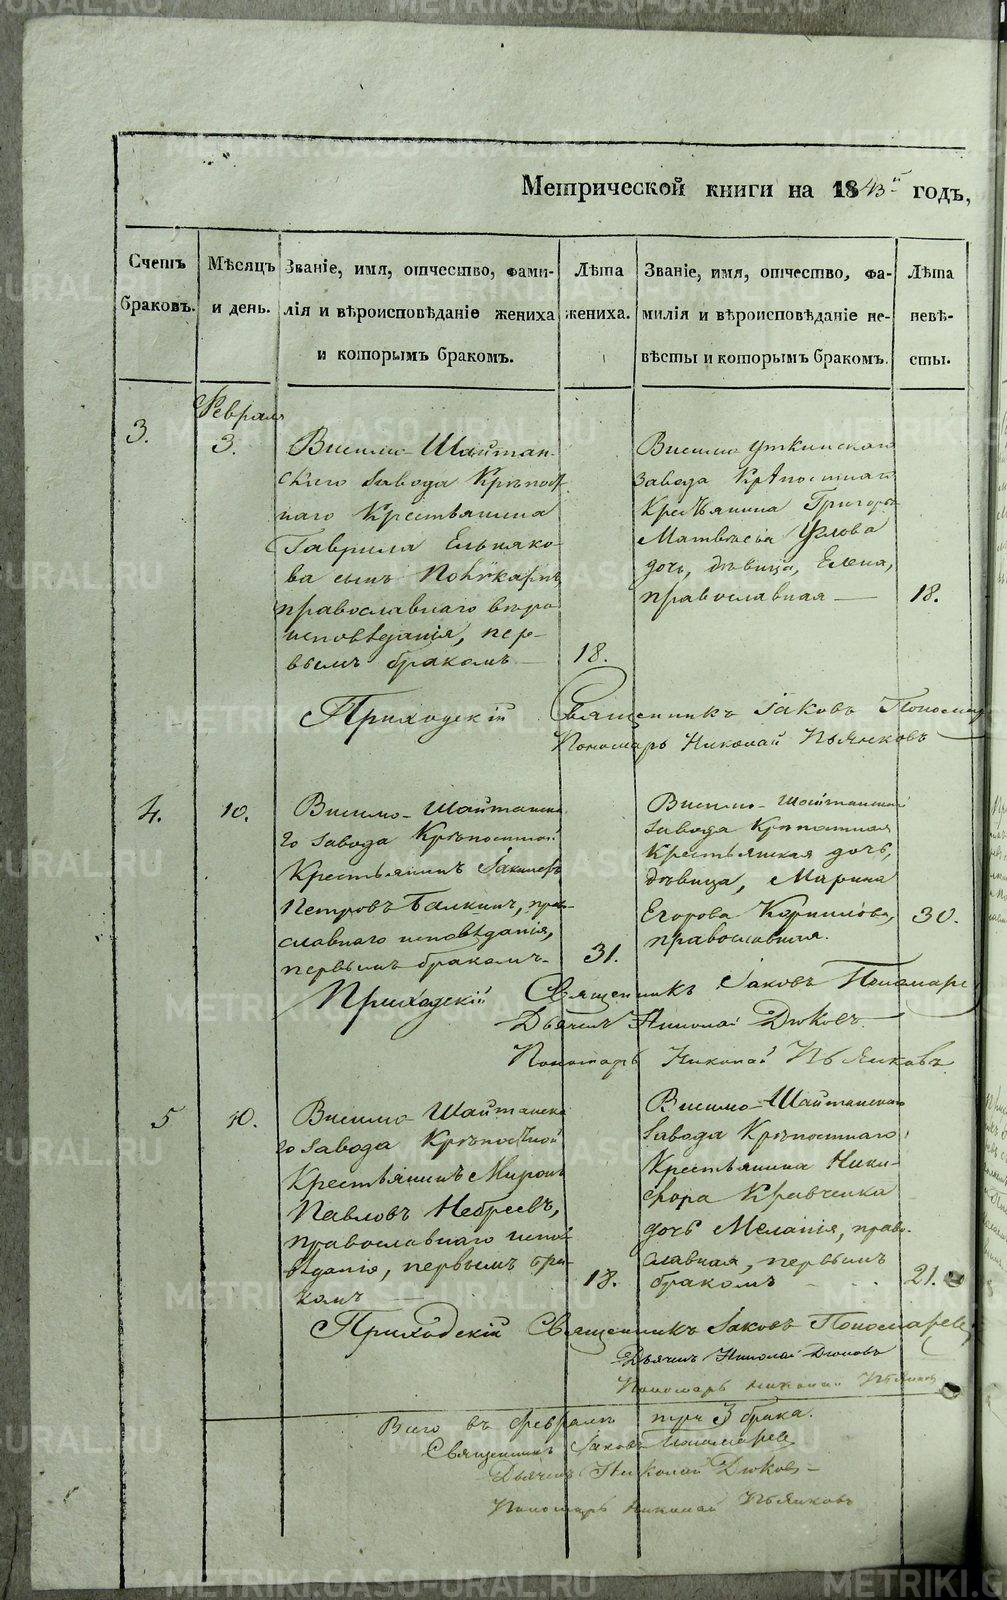 Метрической книги на 1843й годъ,
Счетъ браковъ.
Мѣсяцъ и день.
Званіе, имя, отчество, фами-
лія и вѣроисповѣданіе жениха
и которымъ бракомъ.
Лѣта жениха.
Званіе, имя, отчество, фа-
милія и вѣроисповѣданіе не-
вѣсты и которымъ бракомъ.
Лѣта невѣ-
сты.
Февраль
3.
3.
Висимо-Шайтан-
скаго завода Крѣпост-
наго Крестьянина
Гаврила Ельняко-
ва сынъ
православнаго вѣро
исповѣданія, пер-
вымъ бракомъ
18.
Висимо Уткинскаго
завода Крѣпостнаго
Крестьянина Григорья
Матвѣева Углова
дочь, дѣвица, Елена,
православная
18.
Приходскій Священникъ Іаковъ
Пономарь Николай Пьянковъ
4.
10.
Висимо-Шайтанска
го завода Крѣпостной
Крестьянинъ
Петровъ Балкинъ, пра-
славнаго исповѣданія,
первымъ бракомъ
31.
Висимо-Шайтанскаго
завода Крѣпостная
Крестьянская дочь,
дѣвица, Марина
Егорова Корнилова,
православная.
30.
Приходскій Священникъ Іаковъ Пономарев
Дьячекъ Николай Дюковъ
Пономарь Николай Пьянковъ
5
10.
Висимо-Шайтанска
го завода Крѣпостной
Крестьянинъ Миронъ
Павловъ Небреевъ,
православнаго испо-
вѣданія, первымъ бра-
комъ
18.
Висимо-Шайтанскаго
завода Крѣпостнаго
Крестьянина Ники-
фора Кравченка
дочь Меланія, право-
славная, первымъ
бракомъ
21.
Приходскій Священникъ Іаковъ Пономаревъ
Дьячекъ Николай Дюковъ
Пономарь Николай Пьянков
Всего въ февралѣ три 3 брака.
Священникъ Іаковъ Пономарев
Дьячекъ Николай Дюковъ
Пономарь Николай Пьянковъ
METRIKI.GASO-URAL.RU